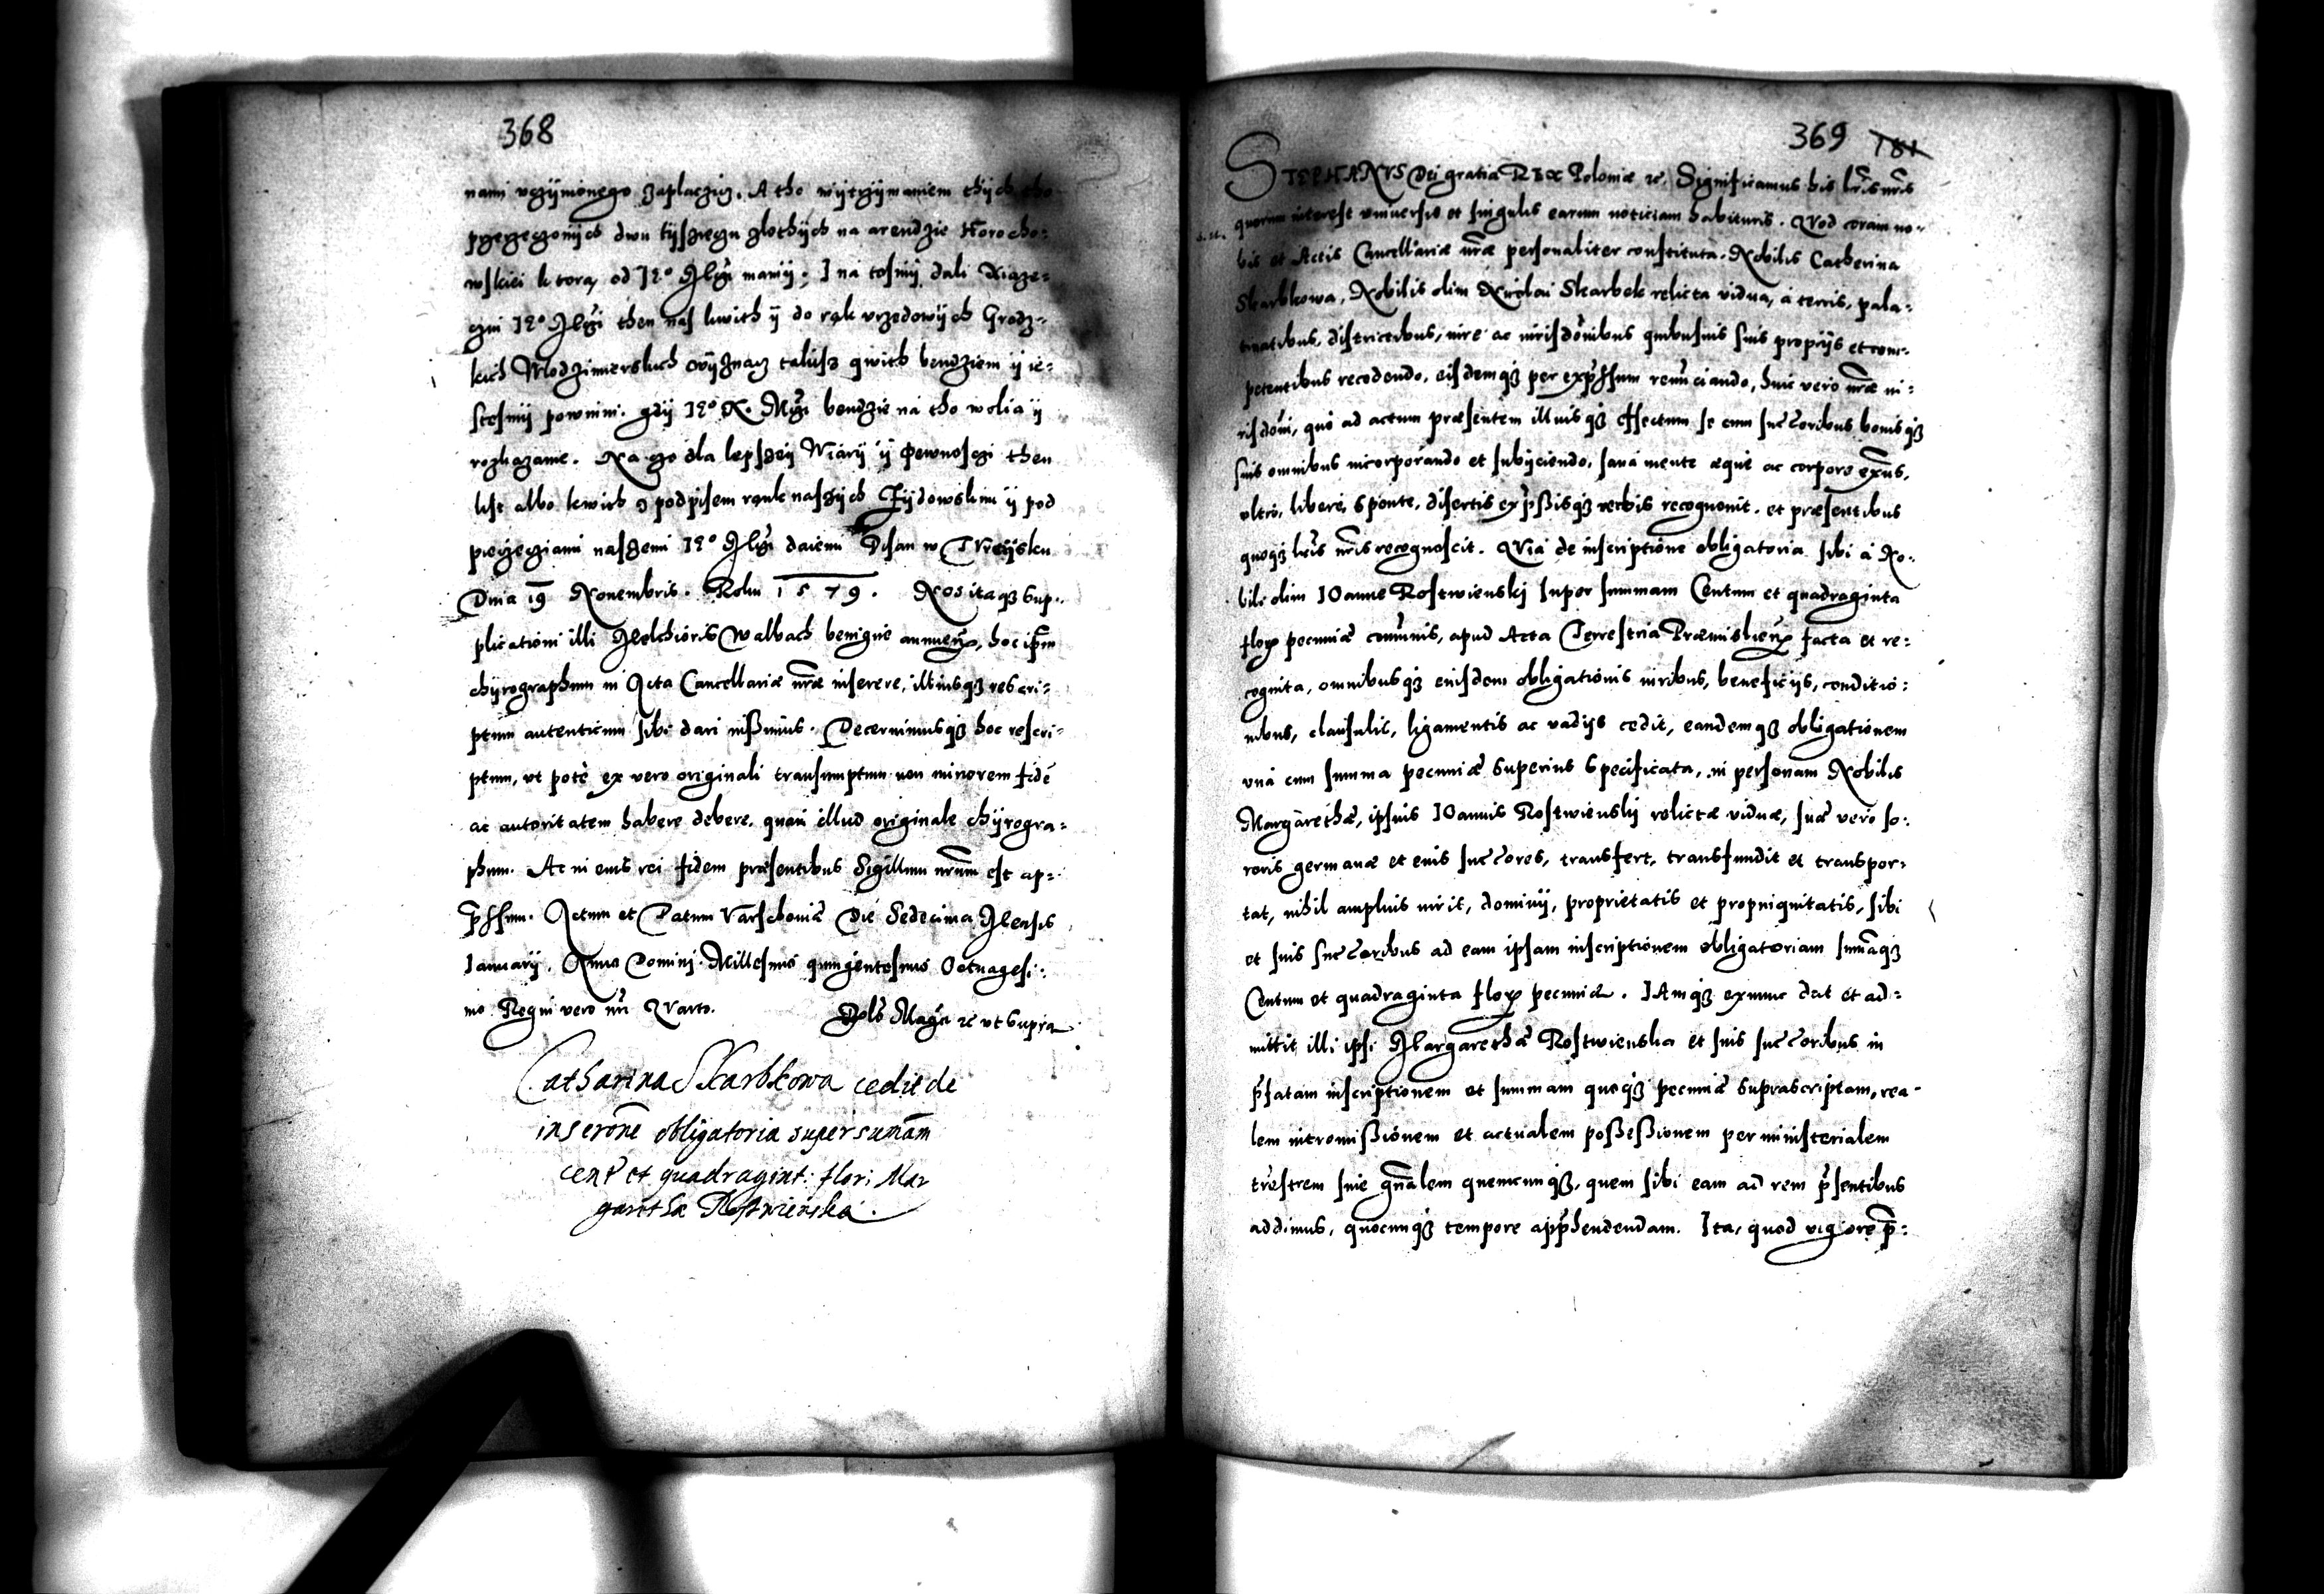 368
nami vczÿnionego zaplaczicz. A tho wÿtrzÿmaniem thÿch tho
przerzeczonÿch dwu tÿszięczu zlothÿch na arendzie Horocho=
wskiei ktorą od
then nasz kwith ÿ do rąk vrzędowÿch Grodz=
kich Wlodzimierskich wÿznacz takisz qwith bendziem ÿ ie=
stesmÿ powinni. gdÿ Je° K. Mczi bendzie na tho wolia ÿ
rozkazanie. Na czo dla lepszeÿ Wiarÿ ÿ Pewnosczi then
list albo kwith s podpisem ręnk naszÿch Zÿdowskim ÿ pod
pieczęciami naszemi Je° Mczi daiemi Pisan w
Dnia 19 Nouembris. Roku 1579. Nos itaq₃ sup=
plicationi illi Melchioris Walbach benigne annuen, hoc ipm̄
chÿrographum in Acta Cancellariæ nr̄æ inserere, illiusq₃ rescri=
ptum autenticum sibi dari iussimus. Decernimusq₃ hoc rescri=
ptum, vt potè ex vero originali transumptum non minorem fidē
ac autoritatem habere debere, quam illud originale chÿrogra=
phum. Ac in eius rei fidem præsentibus Sigillum nr̄um est ap=
p̄ssum. Actum et Datum Varschouiæ Die Sedecima Mensis
Ianuarij. Anno Domini Millesimo quingentesimo Octuagesi=
mo Regni vero nr̄i Qvarto.
ut supra
Catharina Skarbkowa cedit de
inscrōne obligatoria super sum̄am
cent et quadragint: flori Mar
garethæ Rostwieńska.
369 181
STEPHANVS Dei gratia Rex Poloniæ &c. Significamus his lr̄is nr̄is
quorum interest vniuersis et singulis earum noticiam habituris. Qvod coram no=
bis et Actis Cancellariæ nr̄æ personaliter constituta. Nobilis Catherina
Skarbkowa, Nobilis olim Nicolai Skarbek relicta vidua, à terris, pala=
tinatibus, districtibus, iure ac iurisdōnibus quibusuis suis proprijs et com=
petentibus recedendo, eisdemq₃ per exp̄ssum renunciando, huic vero nr̄æ iu=
risdōni, quo ad actum præsentem illiusq₃ effectum se cum succoribus bonisq₃
suis omnibus incorporando et subijciendo, sana mente æque ac corpore exn̄s,
vltrò, liberè, sponte, disertis exp̄ßisq₃ verbis recognouit, et præsentibus
quoq₃ lr̄is nr̄is recognoscit. Qvia de inscriptione obligatoria sibi à No=
bili olim IOanne Rostwienskj super summam Centum et quadraginta
flor pecuniæ com̄unis, apud Acta Terrestria Præmislien facta et re=
cognita, omnibusq₃ eiusdem obligationis iuribus, beneficijs, conditio=
nibus, clausulis, ligamentis ac vadijs cedit, eandemq₃ obligationem
vnà cum summa pecuniæ superius specificata, in personam Nobilis
Margarethæ, ipsius IOannis Rostwienskij relictæ viduæ, suæ vero so=
roris germanæ et eius succores, transfert, transfundit et transpor=
tat, nihil amplius iuris, dominij, proprietatis et propinquitatis, sibi
et suis succoribus ad eam ipsam inscriptionem obligatoriam sum̄aq₃
Centum et quadraginta flor pecuniæ. IAmq₃ exnunc dat et ad=
mittit illi ipsi Margarethæ Rostwienska et suis succoribus in
p̄fatam inscriptionem et summam quoq₃ pecuniæ suprascriptam, rea=
lem intromißionem et actualem poßeßionem per ministerialem
tr̄estrem siue gn̄alem quemcunq₃, quem sibi eam ad rem p̄sentibus
addimus, quocunq₃ tempore app̄hendendam. Ita, quod vigore p̄=